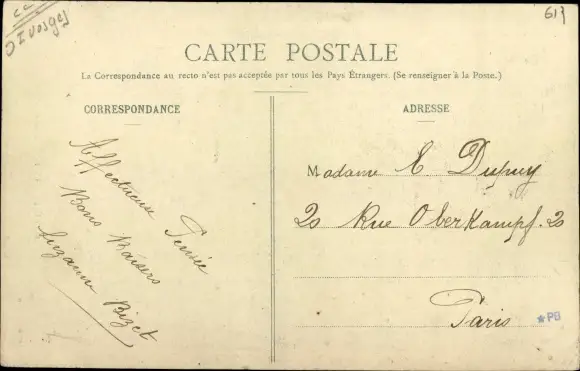 CC
617
CARTE POSTALE
La Correspondance au recto n'est pas acceptée par tous les Pays Étrangers. (Se renseigner à la Poste.)
CORRESPONDANCE
Affectueuse Pensée
Bons Baisers
Suzanne Bizet
ADRESSE
Madame E Dupuy
20 Rue Oberkampf. 20
Paris
*PB